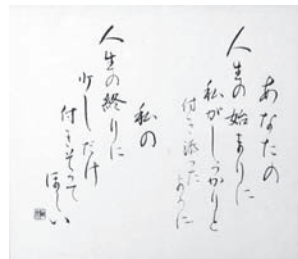 あなたの
人生の始まりに
私がしっかりと
付き添ったように
私の
人生の終りに
少しだけ
付きそって
ほしい